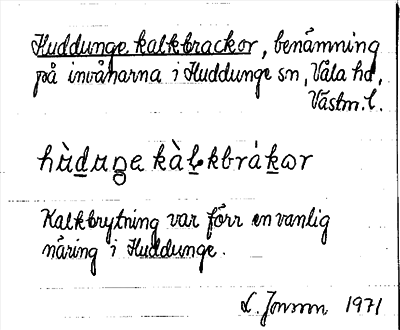 Huddunge kalkbrackor, benämning
på invånarna i Huddunge sn, Våla hd,
Västm. l.
hùduŋe kàlkbrákor
Kalkbrytning var förr en vanlig
näring i Huddunge.
L. Jonson 1971